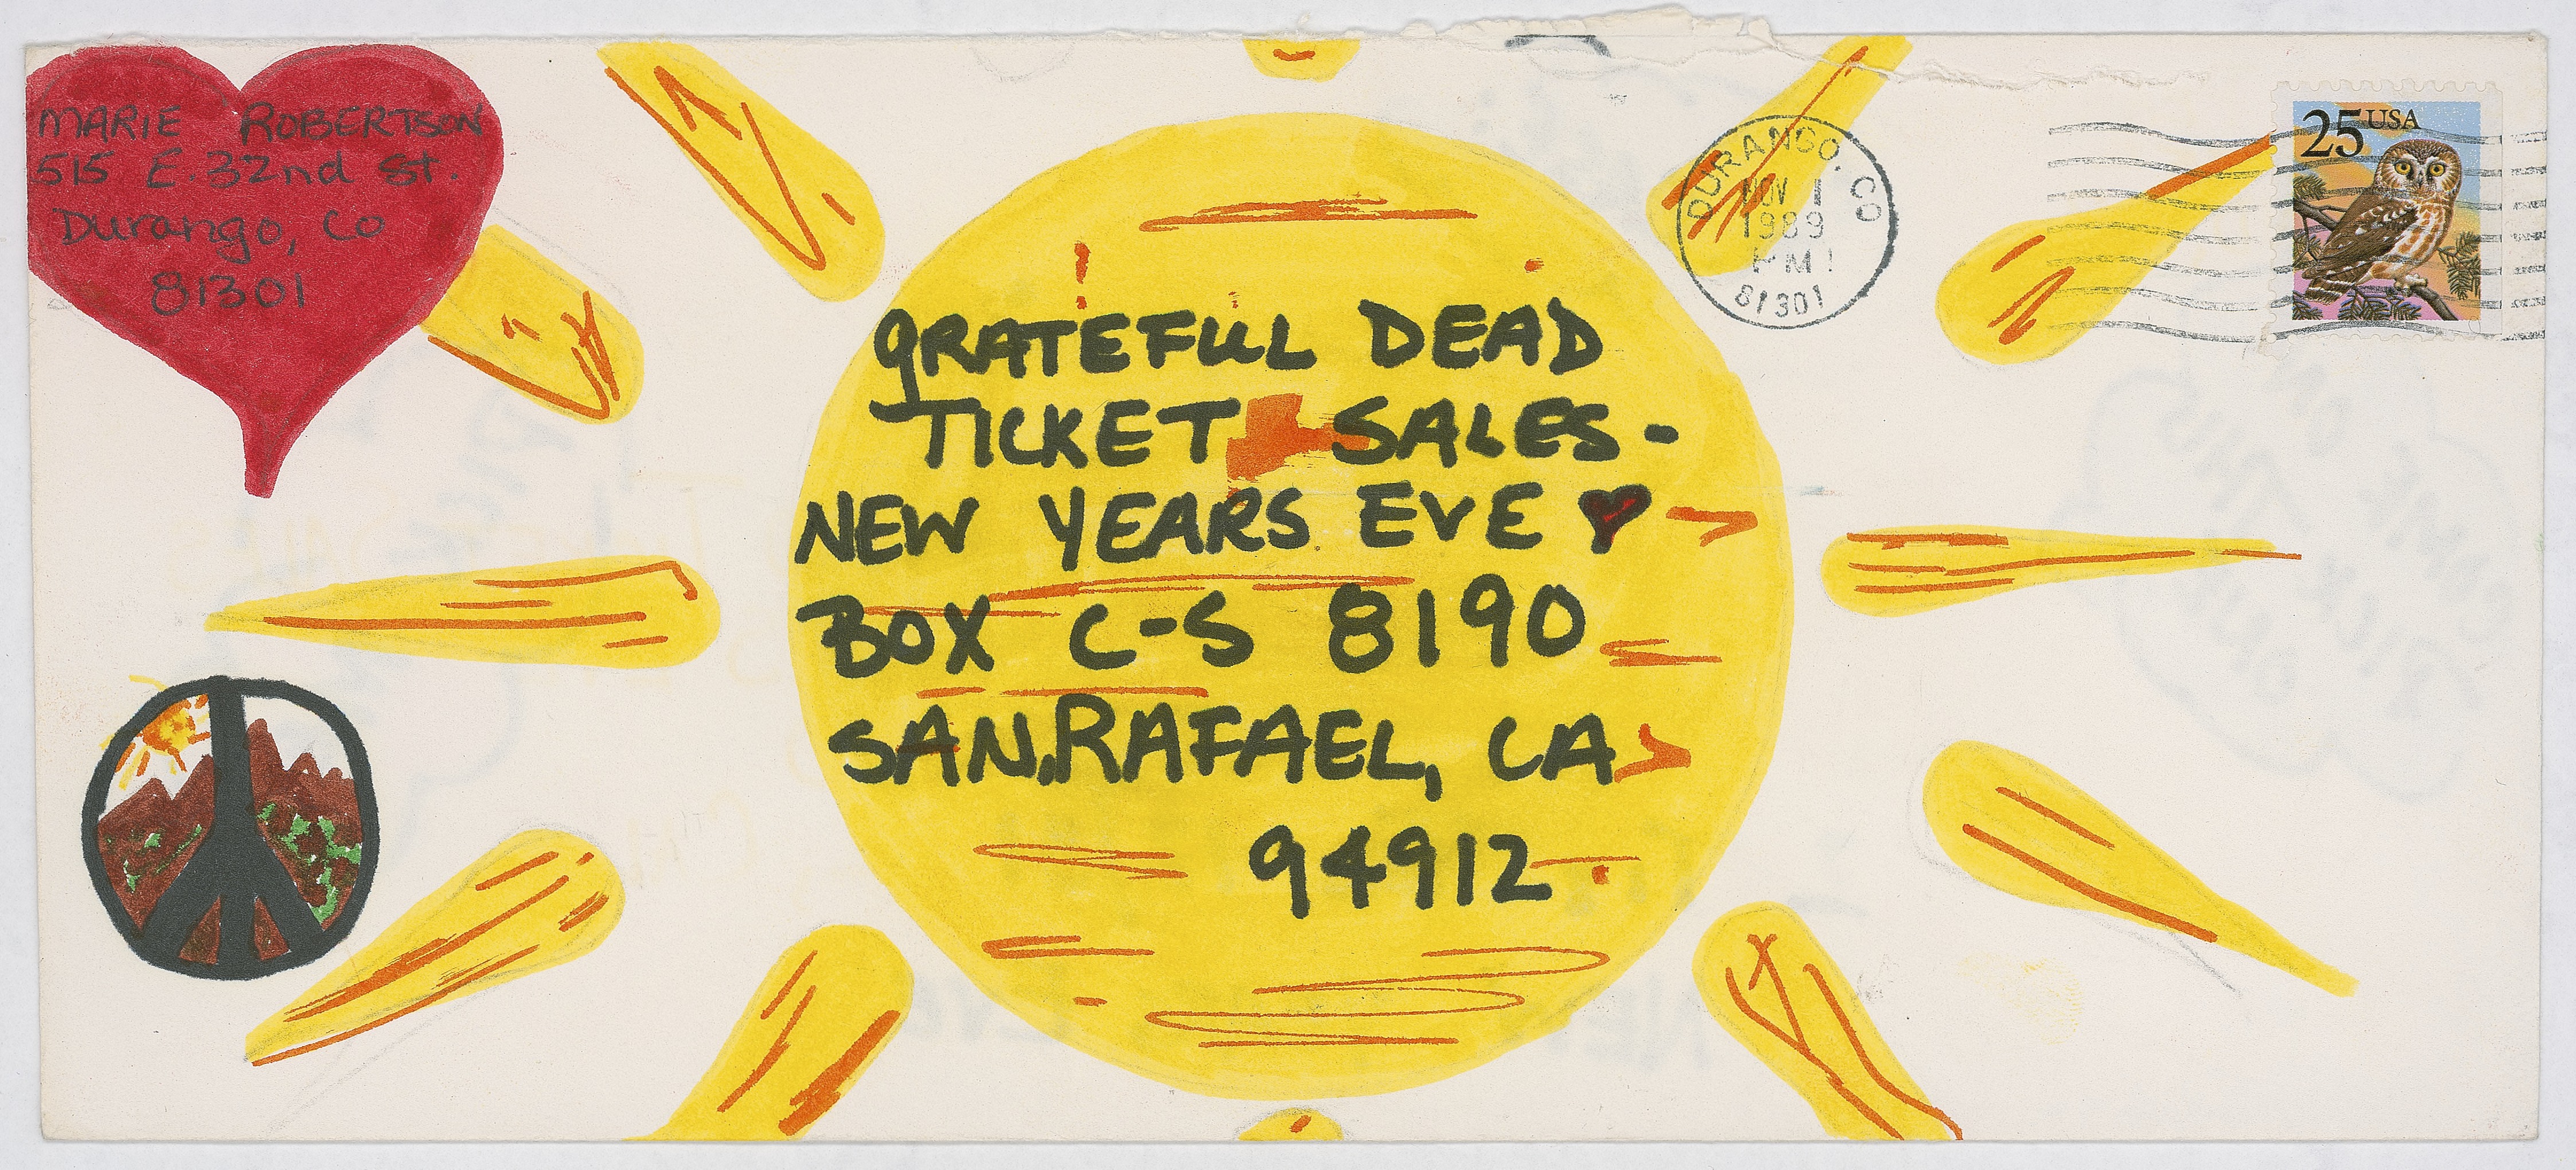 MARIE ROBERTSON
515 E. 32nd St.
Durango, Co
81301
DURANGO, CO
NOV 1
1989
PM
81301
25 USA
GRATEFUL DEAD
TICKET SALES-
NEW YEARS EVE ♥
BOX C-S 8190
SAN, RAFAEL, CA
94912